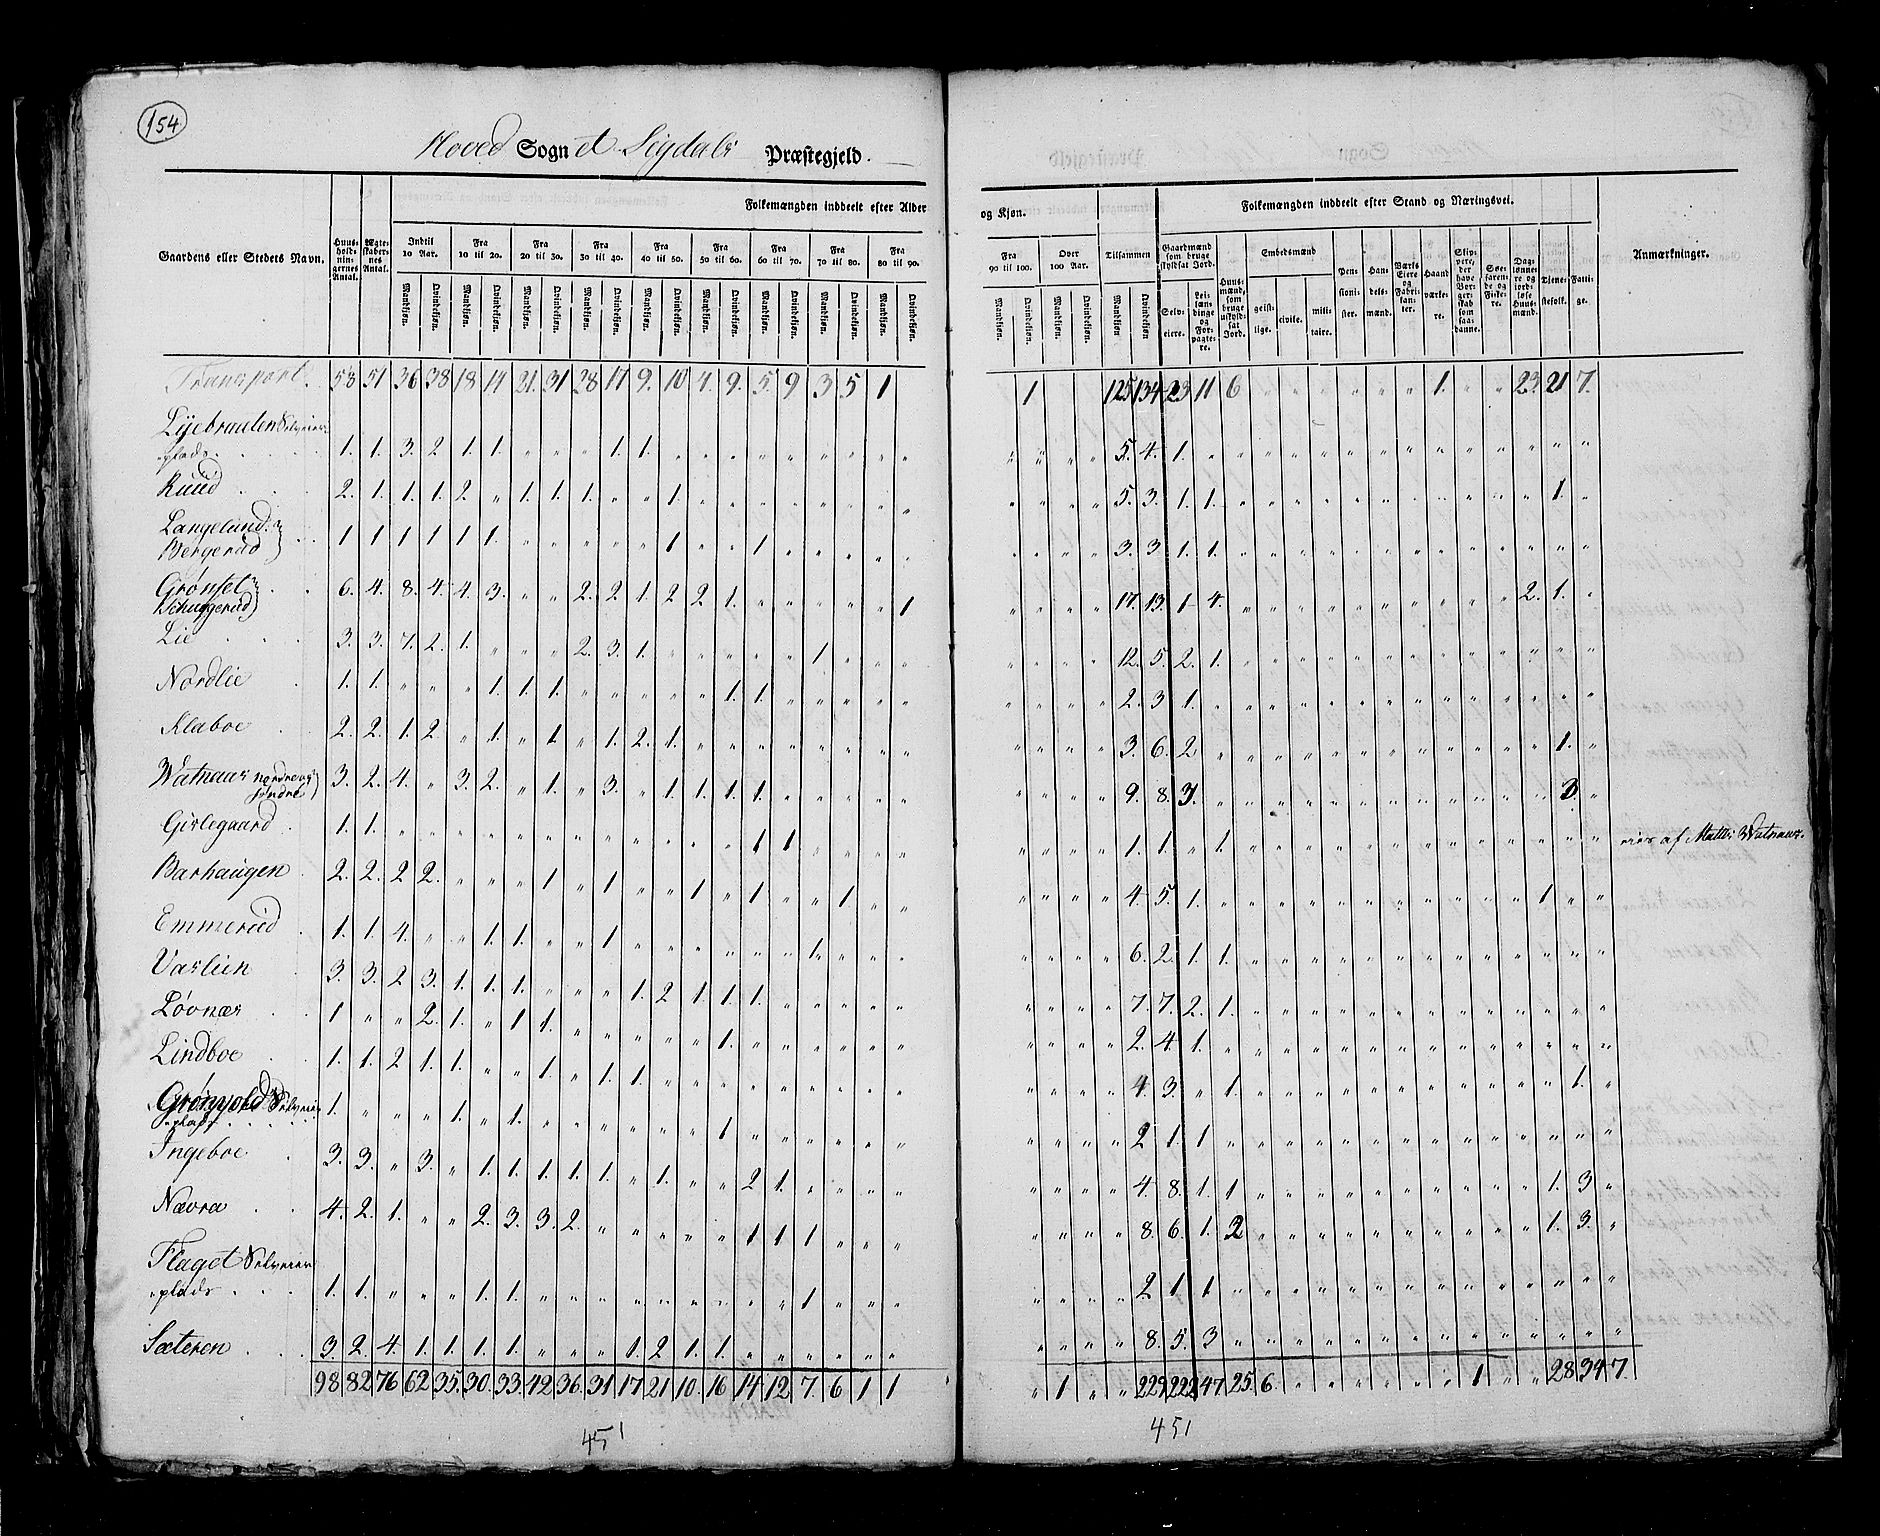 154
Hoved Sogn et Sigdals Præstegjeld.
Gaardens eller Stedets Navn.
Huus-holdnin-gernes Antal.
Ægte-skaber-nes Antal.
Folkemængden inddeelt efter Alder
Indtil 10 Aar. Fra 10 til 20. Fra 20 til 30. Fra 30 til 40. Fra 40 til 50. Fra 50 til 60. Fra 60 til 70. Fra 70 til 80. Fra 80 til 90.
Mandkjøn. Qvindekjøn. Mandkjøn. Qvindekjøn. Mandkjøn. Qvindekjøn. Mandkjøn. Qvindekjøn. Mandkjøn. Qvindekjøn. Mandkjøn. Qvindekjøn. Mandkjøn. Qvindekjøn. Mandkjøn. Qvindekjøn. Mandkjøn. Qvindekjøn.
og Kjøn.
Fra 90 til 100. Over 100 Aar. Tilsammen
Mandkjøn. Qvindekjøn. Mandkjøn. Qvindekjøn. Mandkjøn. Qvindekjøn.
Folkemængden inddeelt efter Stand og Næringsvei.
Gaardmænd som bruge skyldsat Jord.
Selv-eiere.
Lei-læn-dinge og For-pagte-re.
Huus-mænd, som bruge uskyld-sat Jord.
Embedsmænd
geist-lige. civile. mili-taire.
Pen-sioni-ster.
Han-dels-mænd.
Værks Eiere og Fabri-kan-ter.
Haand værke-re.
Skip-pere, der have Bor-ger-skab som saa-danne.
Søe-faren-de og Fiske-re.
Dag-lønne-re og jord-løse Huus-mænd.
Tjene-stefolk.
Fatti-ge.
Anmærkninger.
Transport. 53 51 36 38 18 14 21. 31 28 17 9. 10 4. 9. 5. 9 3 5 1 1 125 134 23 11 6 1. 23. 21 7.
Lyebraaten Selveier
plads. 1. 1. 3. 2 1. 1. 1. 1. 5. 4. 1.
Ruud 2. 1. 1. 1. 2 1. 1. 1. 1. 5. 3. 1. 1. 1.
Langelund
Bergerud 1 1 1 1 1 1. 1 1 3. 3. 1. 1.
Grønset
Schuggerud 6. 4. 8. 4. 4. 3. 2. 2 1. 2 2 1. 1 17. 13. 1 4. 2. 1.
Lie 3. 3. 7. 2. 1. 2. 3. 1. 1 12. 5. 2. 1.
Nordlie 1. 1. 1. 1. 1. 1. 1. 2. 3 1.
Klaboe 2. 2. 1. 2. 1. 1 1. 2. 1. 3. 6. 2 1.
Watnaas nordre og
søndre 3. 2. 4. 3. 2. 1. 3. 1. 1. 1. 1. 9. 8. 3. 3.
Gislegaard 1. 1. 1 1. 1. 1. 1. eies af Watnaas.
Barhaugen 2. 2. 2 2. 1 1 1 1 1 4. 5. 1. 1
Emmerud 1. 1. 4. 1. 1. 1 1. 6. 2. 1. 1.
Vaslien 3. 3. 2 3. 1. 1. 1. 1. 2 1. 1. 1. 7. 7. 2. 1.
Løvnæs 1 2. 1. 1 1. 1. 2. 4. 1.
Lindboe 1. 1. 2 1. 1. 1. 1. 1. 4. 3. 1. 1.
Grønvold Selveier
plads 1. 1. 1. 1 2 1. 1
Ingeboe 3. 3. 3. 1. 1. 1. 1. 1. 2 1. 4. 8. 1. 1 1. 3
Nævra 4. 2. 1. 2. 3. 3. 2. 1 1 1 8. 6. 1. 2 1. 3.
Flaget Selveier
plads 1. 1. 1. 1. 1 2 1 1
Sæteren 3. 2. 4. 1. 1. 1. 1. 1. 2 1. 1. 8. 5. 3
98 82 76 62 35. 30. 33. 42 36. 31 17 21 10. 16 14 12 7. 6 1 1 1 229 222 47. 25. 6. 1 28 34 7.
451
451